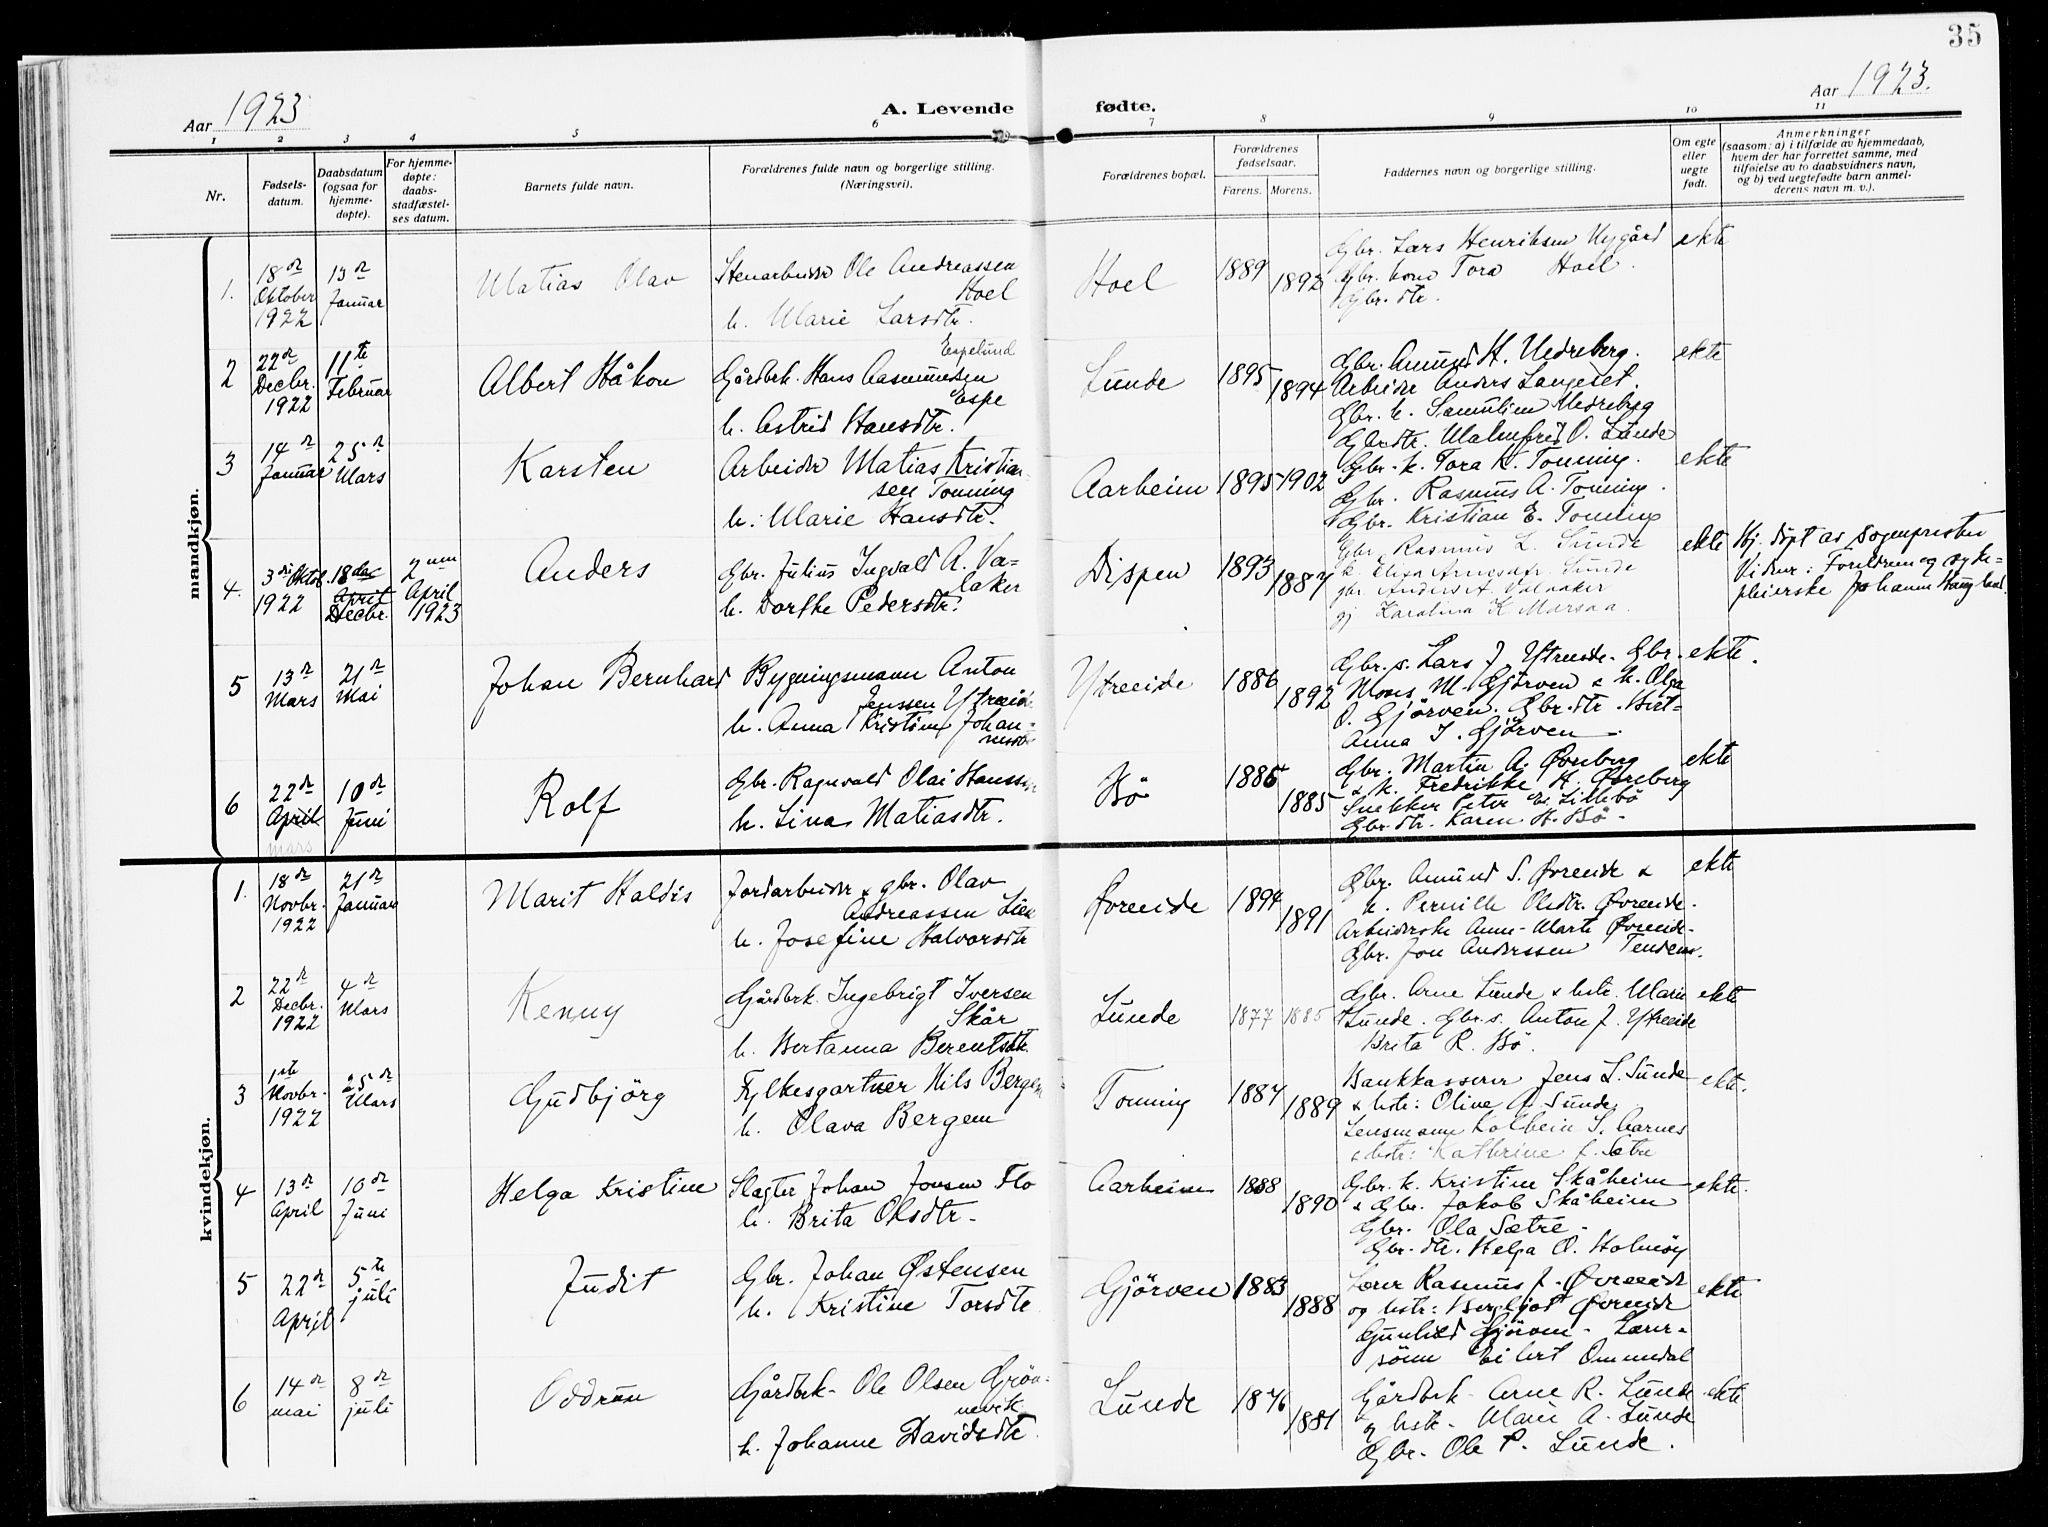 35
Aar 1923
A. Levende fødte.
Aar 1923.
1 2 3 4 5 6 7 8 9 10 11
Nr.
Fødsels-
datum.
Daabsdatum
(ogsaa for
hjemme-
døpte).
For hjemme-
døpte:
daabs-
stadfæstel-
ses datum.
Barnets fulde navn.
Forældrenes fulde navn og borgerlige stilling.
(Næringsvei).
Forældrenes bopæl.
Forældrenes
fødselsaar.
Farens. Morens.
Faddernes navn og borgerlige stilling.
Om egte
eller
uegte
født.
Anmerkninger
(saasom: a) i tilfælde av hjemmedaab,
hvem der har forrettet samme, med
tilføielse av to daabsvidners navn,
og b) ved uegtefødte barn anmel-
derens navn m. v.).
mandkjøn.
1.
18de
Oktober
1922
13de
Januar
Matias Olav
Stenarbeider Ole Andreassen
Hoel
h. Marie Larsdtr.
Hoel
1889
1892
Gbr. Lars Henriksen Nygård
Gbr. kone Tora Hoel.
Gbr. dtr.
ekte
2
22de
Decbr.
1922
11te
Februar
Albert Håkon
Espelund
Gårdbrk. Hans Aasmundsen
Espe
h. Astrid Hansdtr.
Lunde
1895
1894
Gbr. Amund H. Nedreberg.
Arbeider Anders Langeset.
Gbr. k. Samuline Nedreberg
Gbr. dtr. Malmfrid O. Lunde
ekte
3
14de
Januar
25de
Mars
Karsten
Arbeider Matias Kristian-
sen Tonning
h. Marie Hansdtr.
Aarheim
1895
1902
Gbr. k. Tora K. Tonning.
Gbr. Rasmus A. Tonning.
Gbr. Kristian E. Tonning
ekte
4.
3die Oktob.
1922
18de
April
Decbr.
2nen
April
1923
Anders
Gbr. Julius Ingvald A. Va-
laker
h. Dorthe Pedersdtr.
Dispen
1893
1887
Gbr. Rasmus L. Sunde
k. Elisa Arnesdtr. Sunde
gbr. Anders A. Valaker
gj. Karolina K Marsaa.
ekte
Hj. døpt av sognepresten
Vidner: Foreldrene og syke-
pleierske Johanne Haugland.
5
13de
Mars
21de
Mai
Johan Bernhard
Bygningsmann Anton
Jenssen Ytreeide
h. Anna Kristine Johan-
nesdtr
Ytreeide
1886
1892
Gbr. s. Lars J. Ytreeide. Gbr.
Mons M. Gjörven & k. Olga
O. Gjörven. Gbr. dtr. Bert-
Anna I. Gjörven
ekte.
6
22de
April
mars
10de
Juni
Rolf
Gbr. Ragnvald Olai Hanssen
h. Lina Matiasdtr.
Bö
1886
1885
Gbr. Martin A. Øvreberg
& k. Fredrikke H. Øvreberg
Snekker Peter E. Lillebö
Gbr. dtr. Karen H. Bö
ekte
kvindekjøn.
1.
18de
Novbr.
1922
21de
Januar
Marit Haldis
Jordarbeider & gbr. Olav
Andreassen Lien
h. Josefine Halvorsdtr
Øvreeide
1894
1891
Gbr. Amund S. Øvreeide &
k. Pernille Olsdtr. Øvreeide.
Arbeiderske Anne-Marte Øvreeide
Gbr. Jon Anderssen Tenden.
ekte
2
22de
Decbr.
1922
4de
Mars
Kenny
Gårdbrk. Ingebrigt Iversen
Skår
h. Bertanna Berentsdtr.
Lunde
1877
1885
Gbr. Arne Lunde & hstr. Marie
Lunde. Gbr. s. Anton J. Ytreeide
Brita R. Bö.
ekte
3
1ste
Novbr.
1922
25de
Mars
Gudbjörg
Fylkesgartner Nils Bergem
h. Olava Bergem
Tonning
1887
1889
Bankkasserer Jens L. Sunde
& hstr: Oline A. Sunde.
Lensmann Kolbein S. Aarnes
& hstr: Kathrine J. Sætre
ekte.
4
13de
April
10de
Juni
Helga Kristine
Slagter Johan Jonsen Flo
h. Brita Olsdtr.
Aarheim
1888
1890
Gbr. k. Kristine Skåheim
& Gbr. Jakob Skåheim
Gbr. Ola Sætre.
Gbr. dtr. Helga O. Holmöy
ekte.
5
22de
April
5te
juli
Judit
Gbr. Johan Østensen
h. Kristine Torsdtr
Gjörven
1883
1888
Lærer Rasmus J. Øvreeide
og hstr: Bergljot Øvreeide
Gunhild Gjörven. Lærer-
sönn Eilert Ommedal
ekte
6
14de
mai
8de
juli
Oddrun
Gårdbrk. Ole Olsen Grön-
nevik
h. Johanne Davidsdtr.
Lunde
1876
1881
Gårdbrk. Arne R. Lunde
og hstr. Marie A. Lunde
Gbr. Ole P. Lunde.
ekte